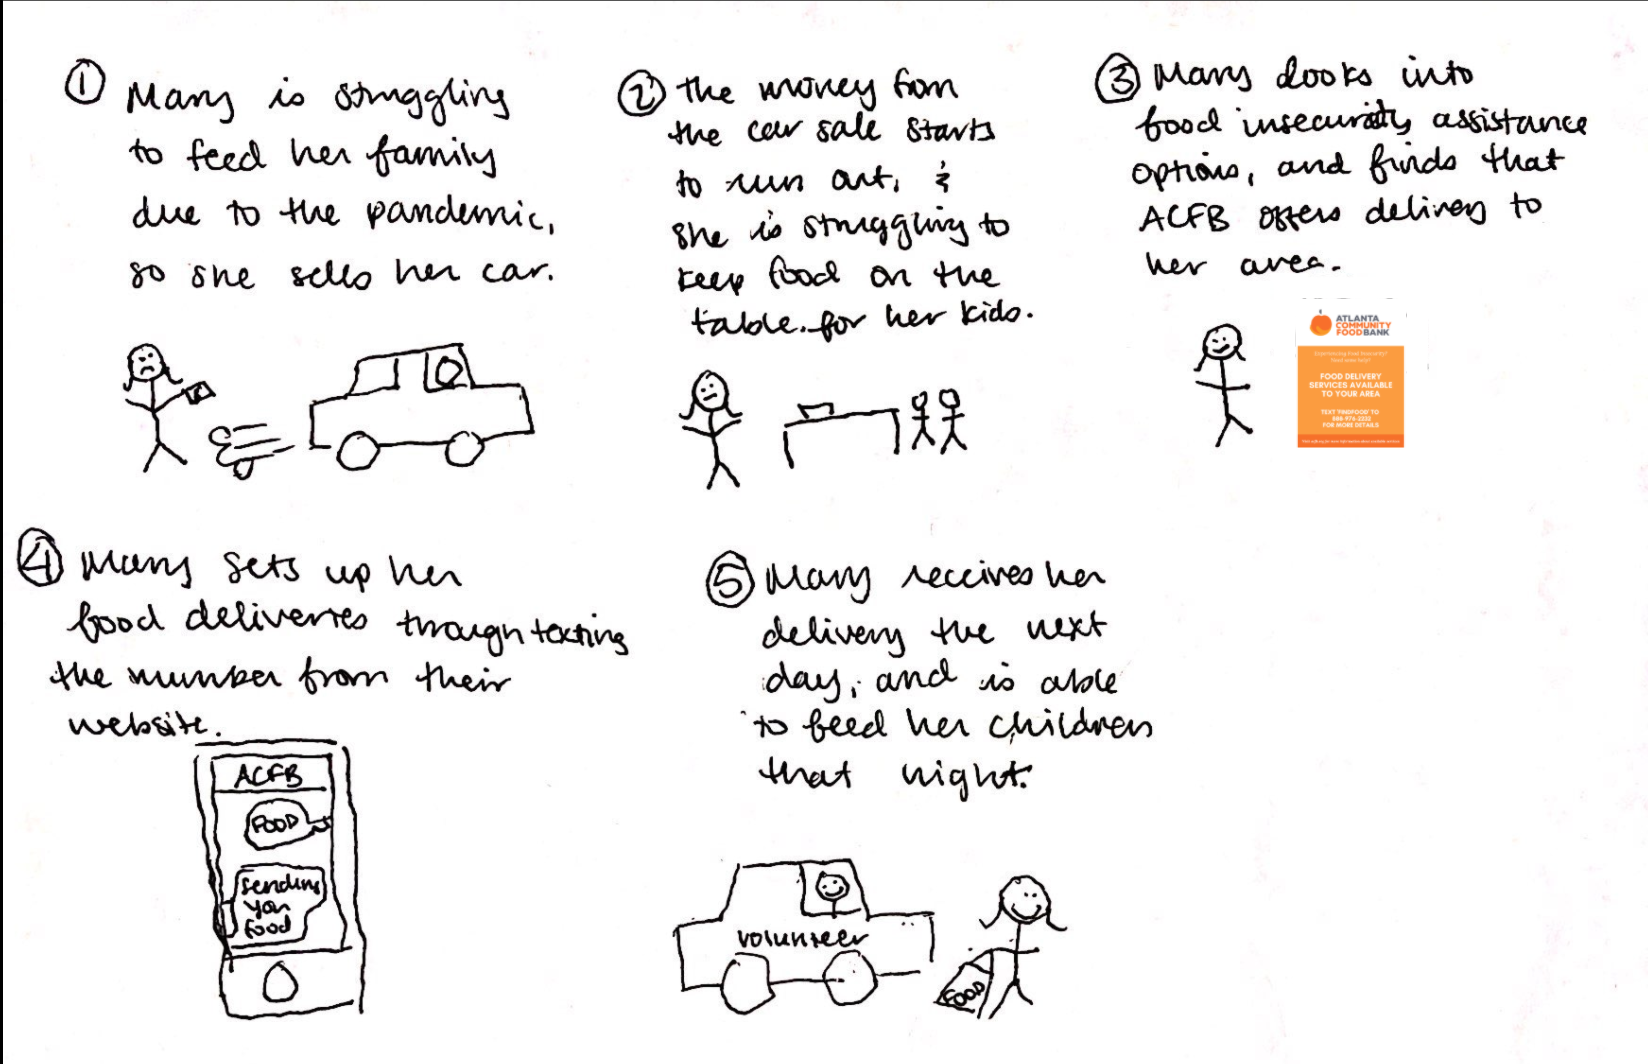 ① Mary is struggling
to feed her family
due to the pandemic,
so she sells her car.
② the money from
the car sale starts
to run out, &
she is struggling to
keep food on the
table for her kids.
③ Mary looks into
food insecurity assistance
options, and finds that
ACFB offers delivery to
her area.
ATLANTA
COMMUNITY
FOOD BANK
FOOD DELIVERY
SERVICES AVAILABLE
TO YOUR AREA
TEXT 'FINDFOOD' TO
FOR MORE DETAILS
④ Mary sets up her
food deliveries through texting
the number from their
website.
ACFB
FOOD
sending
you
food
⑤ Mary receives her
delivery the next
day, and is able
to feed her children
that night.
volunteer
FOOD